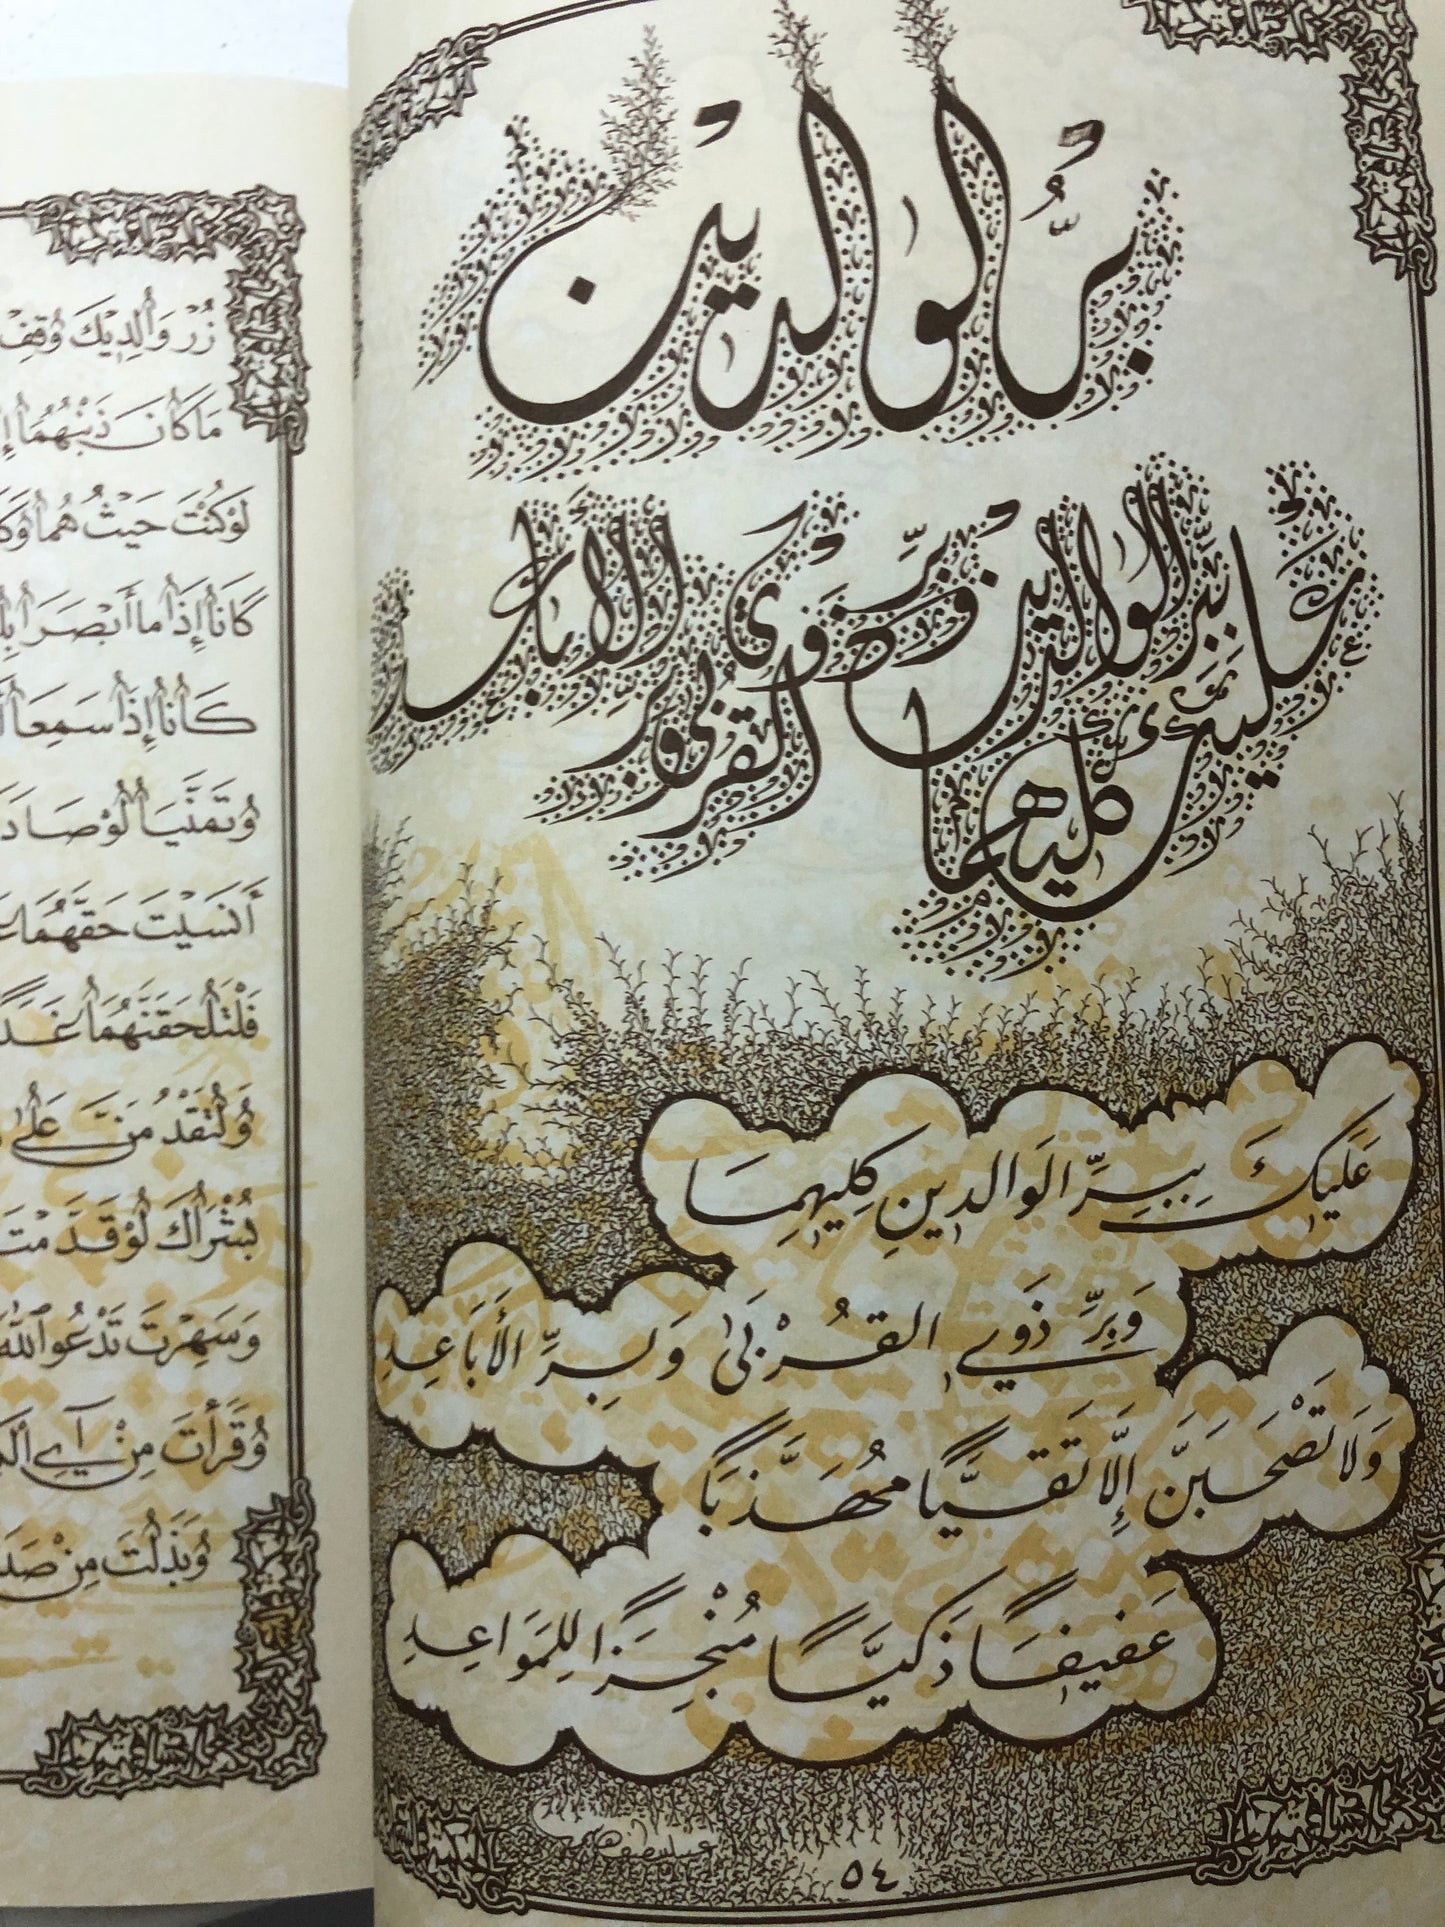 بِرُّ الْوَالِدَيْن
عليك ببر الوالدين كليهما
وبر ذوي القربى وبر الأباعد
عَلَيْكَ بِبِرِّ الوَالِدَينِ كِلَيهِمَا
وَبِرِّ ذَوِي القُرْبَى وَبِرِّ الأَبَاعِدِ
وَلَا تَصْحَبَنَّ إِلَّا تَقِيًّا مُهَذَّبًا
عَفِيفًا ذَكِيًّا مُنْجِزًا لِلمَوَاعِدِ
٥٤
زُرْ وَالِدَيْكَ وَقِفْ
مَا كَانَ ذَنْبُهُمَا إِ
لَوْ كُنْتَ حَيْثُ هُمَا وَكَا
كَانَا إِذَا مَا أَبْصَرَا بِكَ
كَانَا إِذَا سَمِعَا أَ
وَتَمَنَّيَا لَوْ صَادَ
أَنَسِيتَ حَقَّهُمَا عَ
فَلَتَلْحَقَنَّهُمَا غَدًا
وَلَتَقْدُمَنَّ عَلَى
بُشْرَاكَ لَوْ قَدَّمْتَ
وَسَهِرْتَ تَدْعُو اللّٰهَ
وَقَرَأْتَ مِنْ آيِ الكِ
وَبَذَلْتَ مِنْ صَدَ